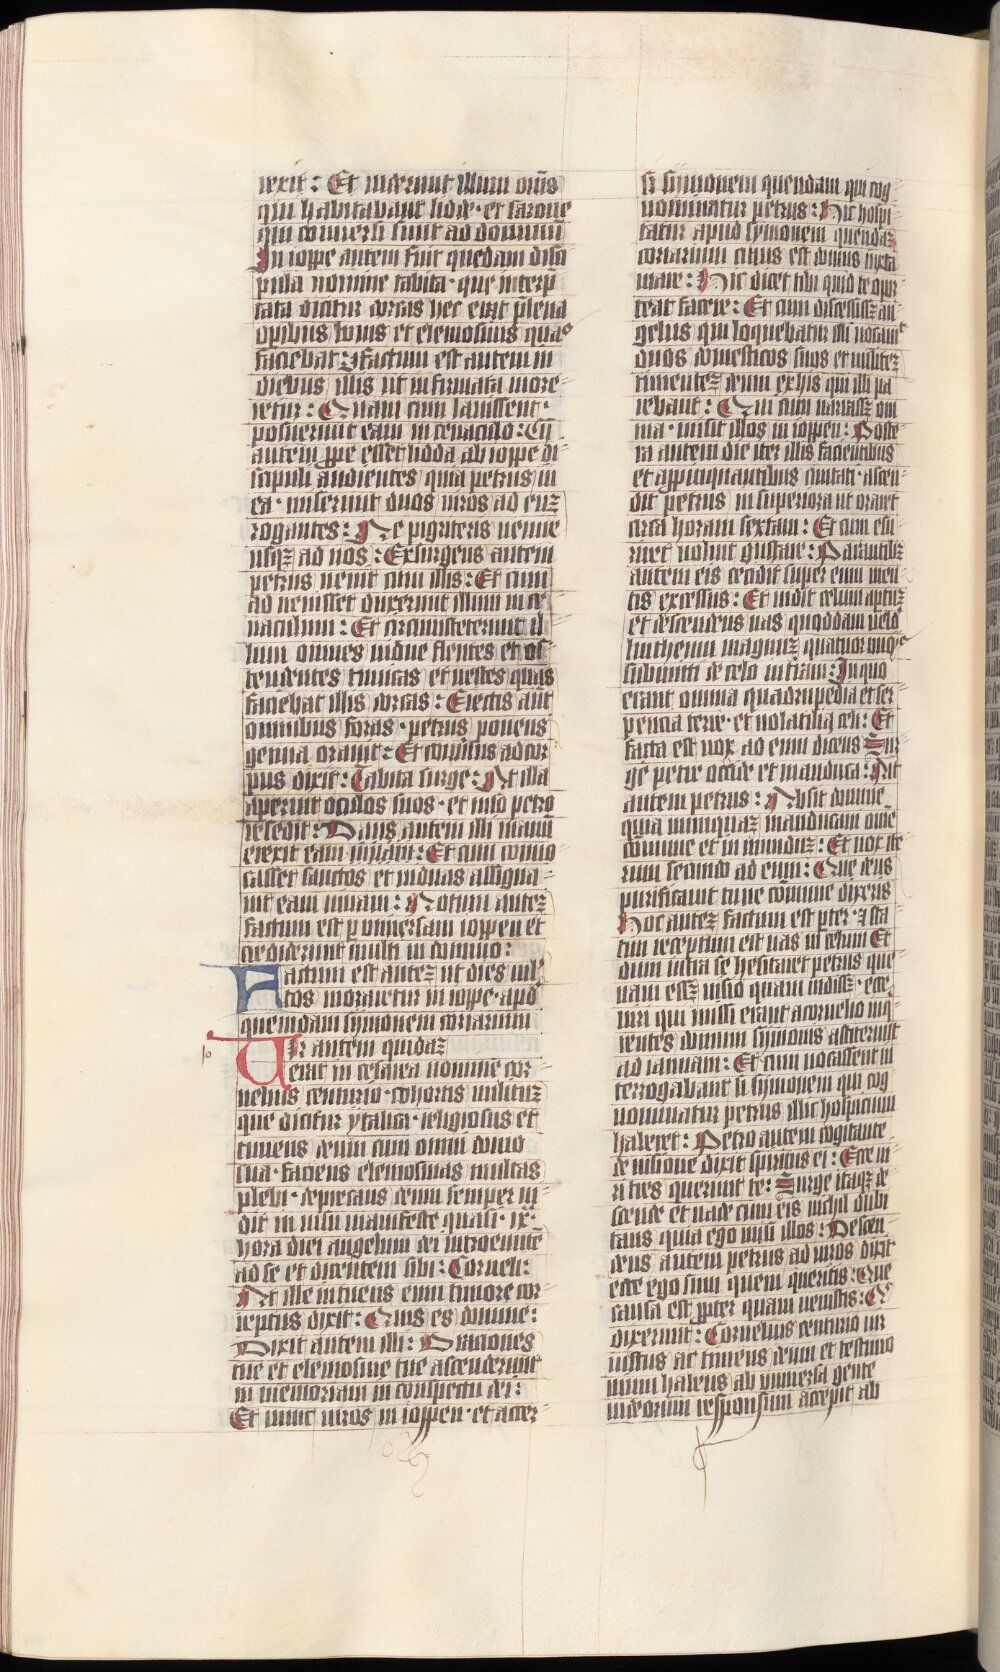 rexit: Et viderunt illum oms
qui habitabant lidde · et sarone
qui conversi sunt ad dominum
In ioppe autem fuit quedam disci
pula nomine tabita · que interp
tata dicitur dorcas hec erat plena
opibus bonis et elemosinis quas
faciebat: factum est autem in
diebus illis ut infirmata more
retur: Quam cum lavissent ·
posuerunt eam in cenaculo: Cu
autem ppe esset lidda ab ioppe di
scipuli audientes quia petrus in
ea · miserunt duos viros ad euz
rogantes: Ne pigriteris venire
usqz ad nos: Exsurgens autem
petrus venit cum illis: Et cum
ad venisset duxerunt illum in ce
naculum: Et circumsteterunt il
lum omnes vidue flentes et os
tendentes tunicas et vestes quas
faciebat illis dorcas: Eiectis aut
omnibus foras · petrus ponens
genua oravit: Et conversus ad cor
pus dixit: Tabita surge: At illa
aperuit oculos suos · et viso petro
resedit: Dans autem illi manu
erexit eam: Et cum voca
sasset sanctos et viduas assigna
vit eam vivam: Notum autez
factum est p universam ioppen et
crediderunt multi in domino:
Factum est autez ut dies mul
tos moraretur in ioppe · apd
quemdam symonem coriarium
Vir autem quidaz
erat in cesarea nomine cor
nelius centurio · cohortis militiz
que dicitur ytalica · religiosus et
timens deum cum omni domo
sua · faciens elemosinas multas
plebi · deprecans deum semper vi
dit in visu manifeste quasi · ix ·
hora diei angelum dei introeunte
ad se et dicentem sibi: Corneli:
At ille intuens eum timore cor
reptus dixit: Quis es domine:
Dixit autem illi: Orationes
tue et elemosine tue ascenderunt
in memoriam in conspectu dei:
Et nunc viros in ioppen · et accer
si symonem quendam qui cog
nominatur petrus: Hic hospi
tatur apud symonem quendaz
coriarium cuius est domus iuxta
mare: Hic dicet tibi quid te opor
teat facere: Et cum discessisz an
gelus qui loquebatur illi vocavit
duos domesticos suos et militez
timentez deum ex hiis qui illi pa
rebant: Qui cum narrassz om
nia · misit illos in ioppen: Poste
ra autem die iter illis facientibus
et appropinquantibus civitati · ascen
dit petrus in superiora ut oraret
circa horam sextam: Et cum esu
riret voluit gustare: Parantibz
autem eis cecidit super eum men
tis excessus: Et vidit celum aptuz
et descendens vas quoddam velut
lintheum magnuz quatuor
submitti de celo in terram: In quo
erant omnia quadrupedia et ser
pencia terre · et volatilia celi: Et
facta est vox ad eum dicens Sur
ge petre occide et manduca: Ait
autem petrus: Absit domine
quia nunquaz manducavi omne
comune et inmunduz: Et vox ite
rum secundo ad eum: Que deus
purificavit tu ne comune dixeris
Hoc autez factum est p ter · z sta
tim receptum est vas in celum Et
dum intra se hesitaret petrus que
nam essz visio quam vidissz · ecce
viri qui missi erant a cornelio inq
rentes domum symonis astiterunt
ad ianuam: Et cum vocassent in
terrogabant si symonem qui cog
nominatur petrus illic hospicium
haberet: Petro autem cogitante
de visione dixit spiritus ei: Ecce vi
ri tres querunt te: Surge itaqz de
scende et vade cum eis nichil dubi
tans quia ego misi illos: Descen
dens autem petrus ad viros dixit
ecce ego sum quem queritis: Que
causa est ppter quam venistis: Q
dixerunt: Cornelius centurio vir
iustus ac timens deum et testimo
nium habens ab universa gente
iudeorum responsum accepit ab